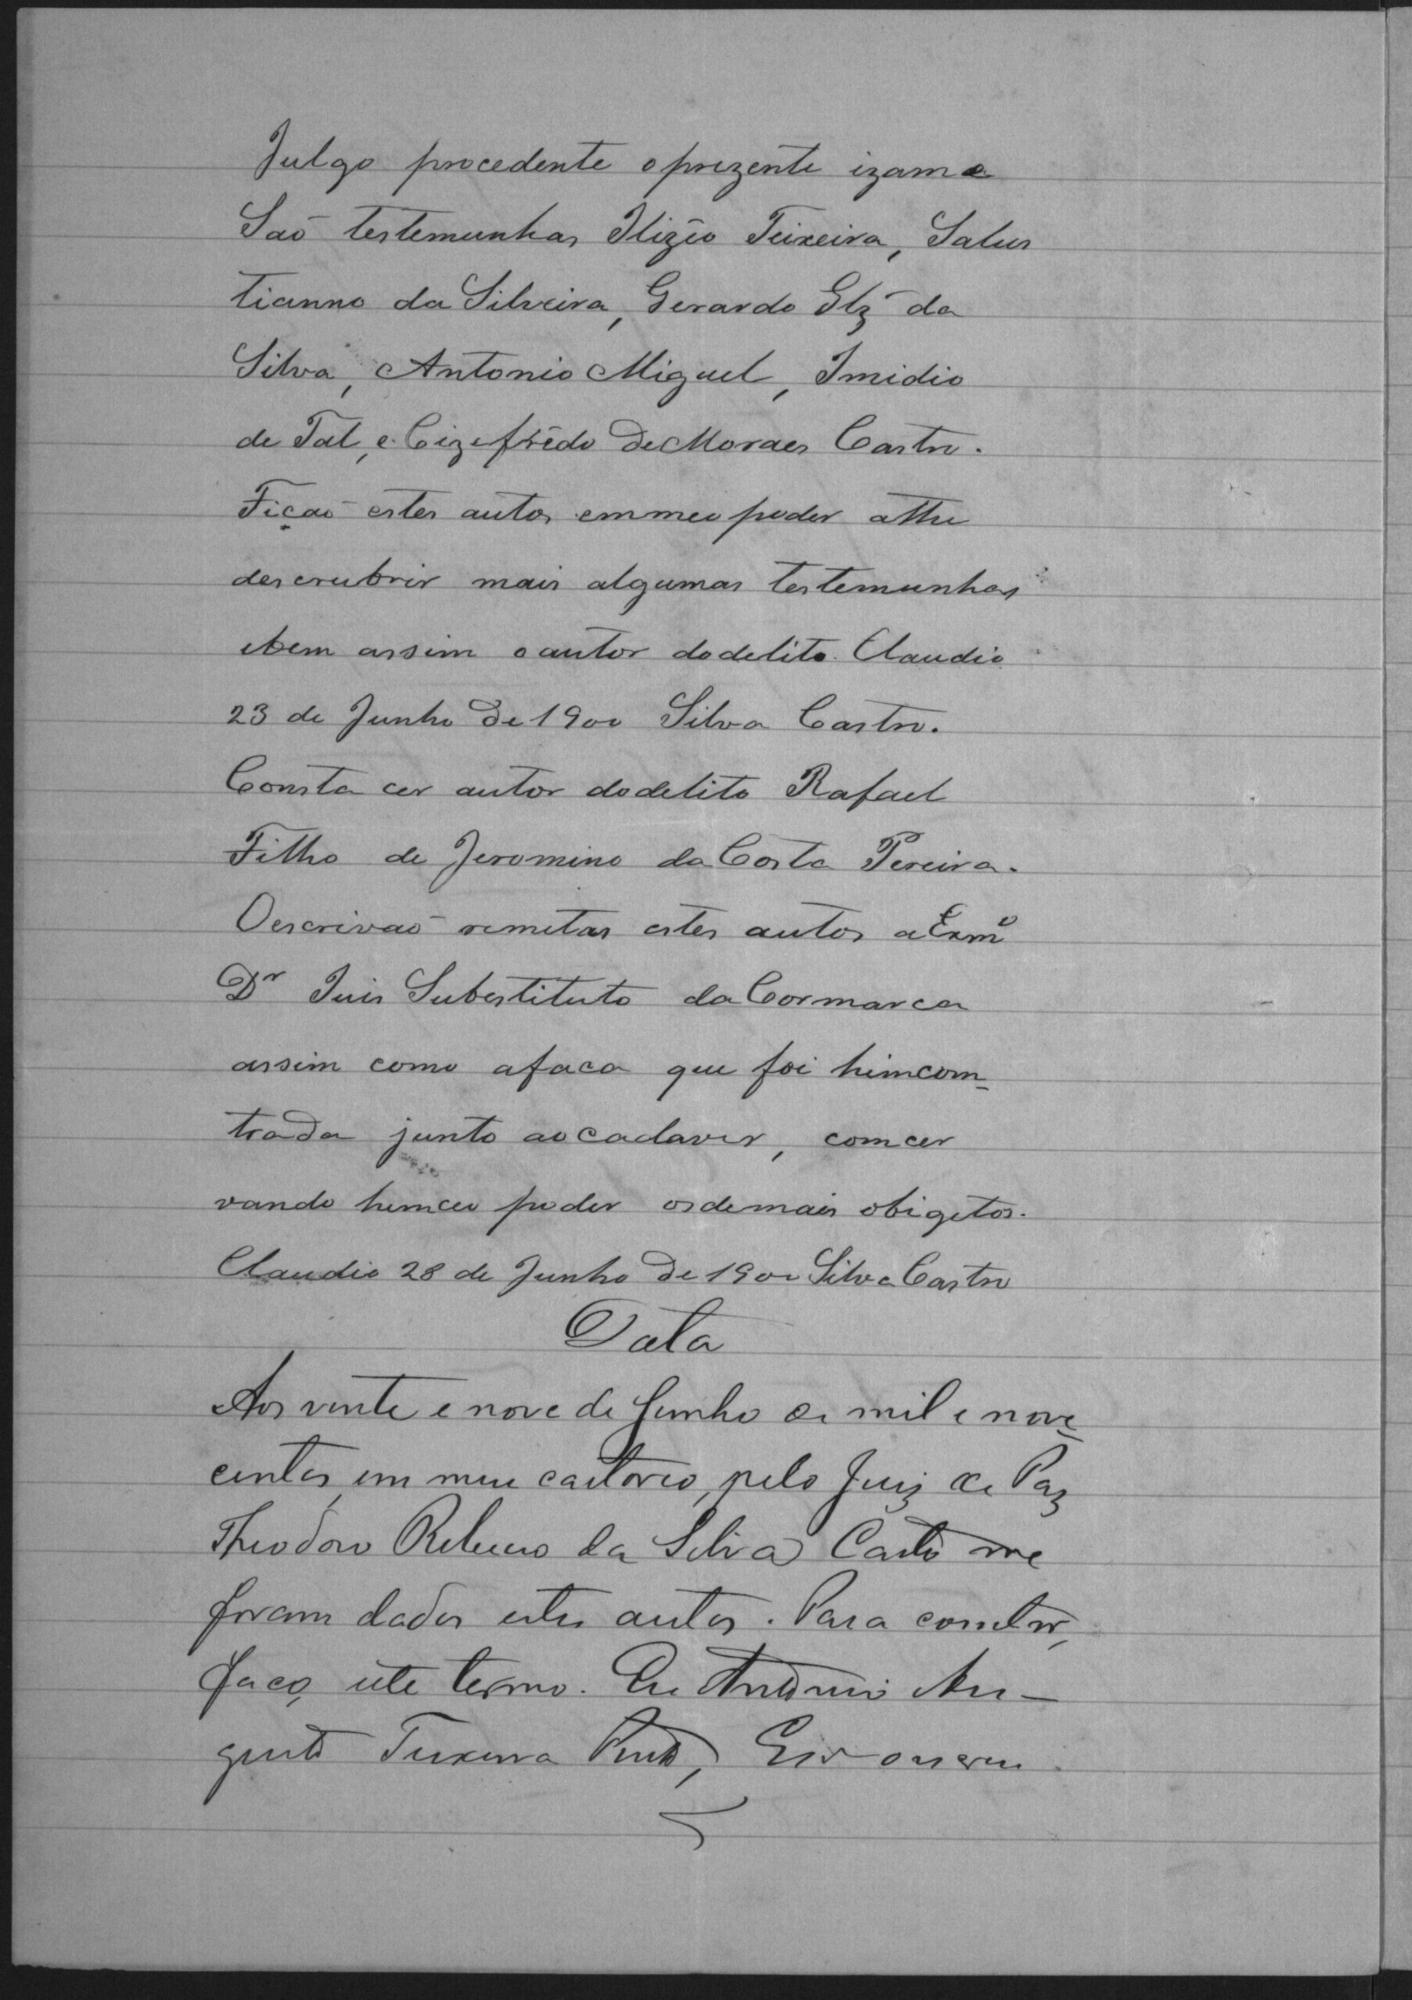 Julgo procedente o prezente izame
Saõ testemunhas Ilizio Teixeira, Salus
tianno da Silveira, Gerardo Glz da
Silva, Antonio Miguel, Imidio
de Tal, e Cizefrêdo de Moraes Castro.
Ficaõ estes autos em meu poder athe
descrubrir mais algumas testemunhas
e bem assim o autor do delito. Claudio
23 de Junho de 1900 Silva Castro.
Consta cer autor do delito Rafael
Filho de Jeromino da Costa Pereira.
O escrivaõ remetas estes autos a Exmº
Dr Juis Substituto da Cormarca
assim como a faca que foi himcom
trada junto ao cadaver, comcer
vando hemceu poder os demais obigetos.
Claudio 28 de Junho de 1900 Silva Castro
Data
Aos vinte e nove de Junho de mil e nove
centos, em meu cartorio, pelo Juiz de Paz
Theodoro Ribeiro da Silva Castro me
foram dados estes autos. Para constar,
faço este termo. Eu Antonio Au-
gusto Teixeira Pinto, Esc o escrevi.